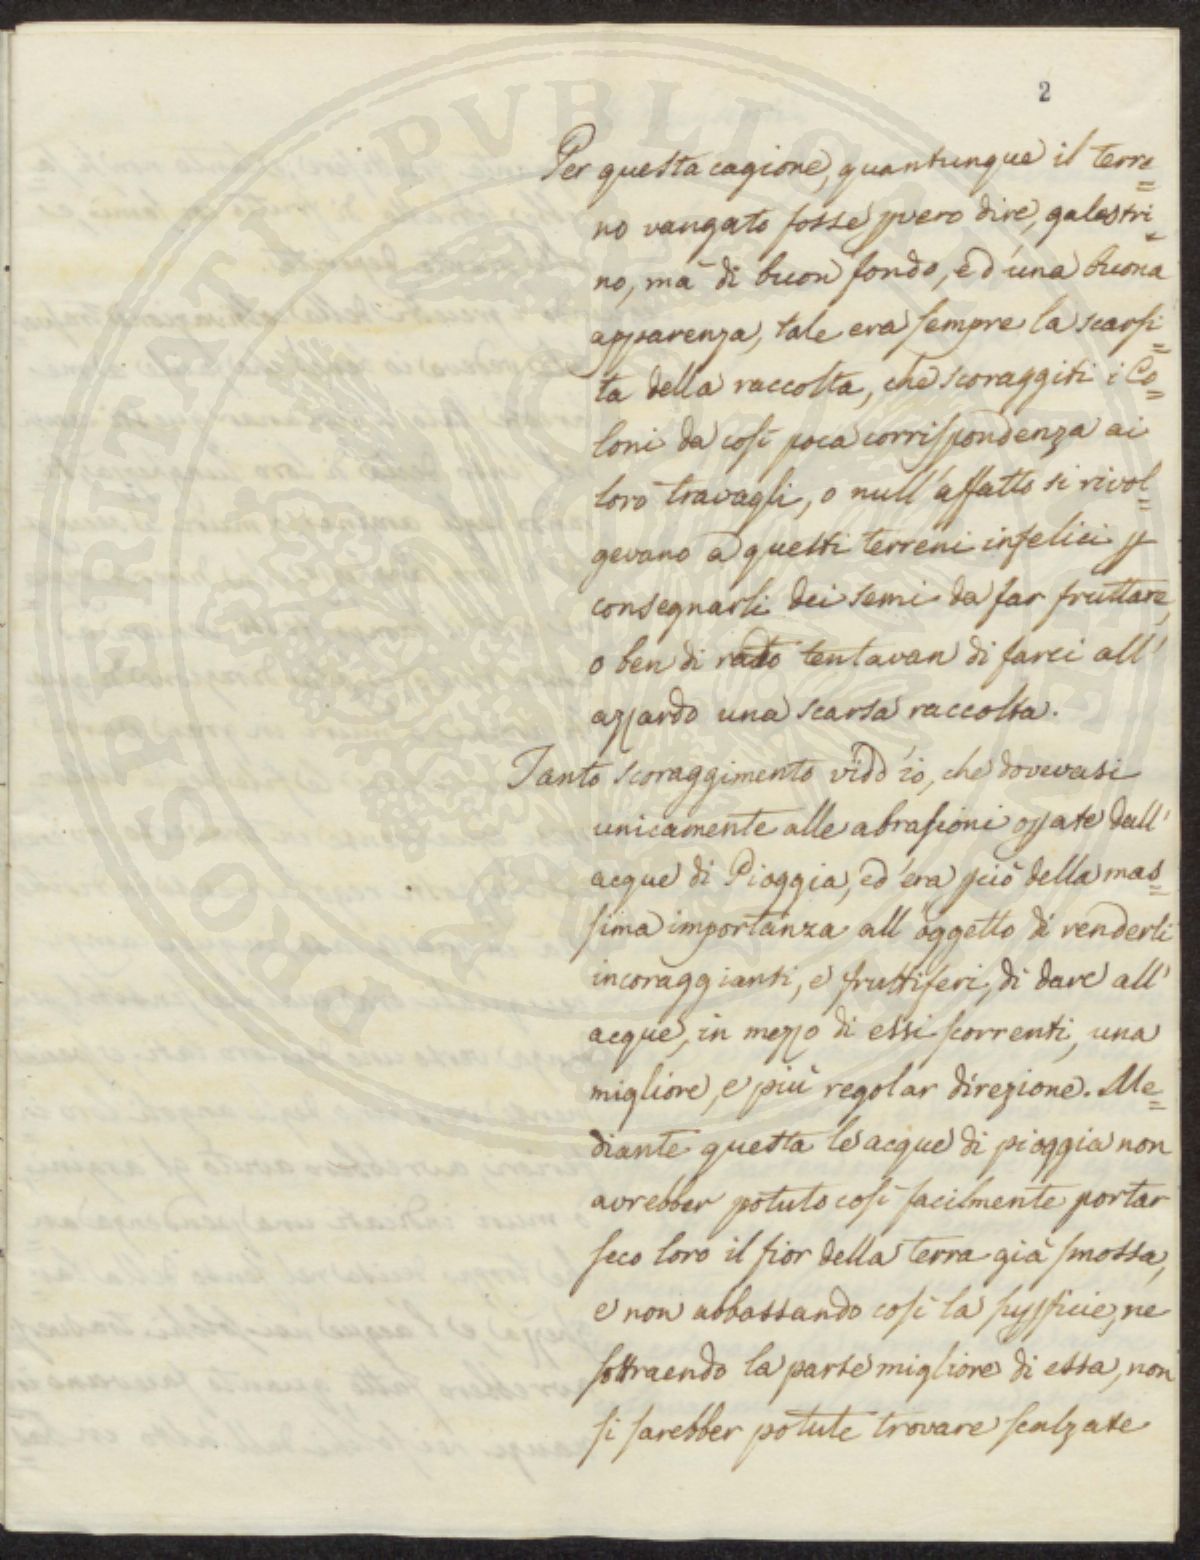 2
Per questa cagione, quantunque il terre=
no vangato fosse p vero dire, galestri=
no, mà di buon fondo, ed una buona
apparenza, tale era sempre la scarsi=
ta della raccolta, che scoraggiti i Co=
loni da così poca corrispondenza ai
loro travagli, o null'affatto si rivol=
gevano a questi terreni infelici p
consegnarli dei semi da far fruttare,
o ben di rado tentavan di farci all'
azzardo una scarsa raccolta.
Tanto scoraggimento vidd'io, che dovevasi
unicamente alle abrasioni opate dall'
acque di Pioggia, ed era pciò della mas=
sima importanza all'oggetto di renderli
incoraggianti, e fruttiferi, di dare all'
acque, in mezzo di essi scorrenti, una
migliore, e più regolar direzione. Me=
diante questa le acque di pioggia non
avrebber potuto così facilmente portar
seco loro il fior della terra già smossa,
e non abbassando così la supficie, ne
sottraendo la parte migliore di essa, non
si sarebber potute trovare scalzate
PROSPERITATI PUBLICAE AUGENDAE